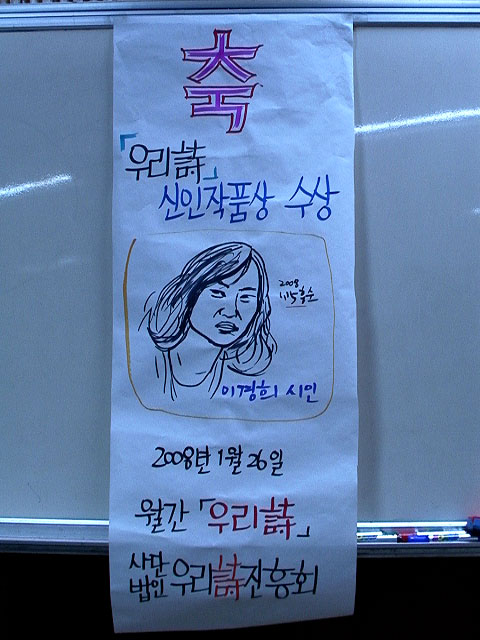 축
「우리詩」
신인작품상 수상
2008
이경희 시인
2008년 1월 26일
월간 「우리詩」
사단
법인 우리詩진흥회